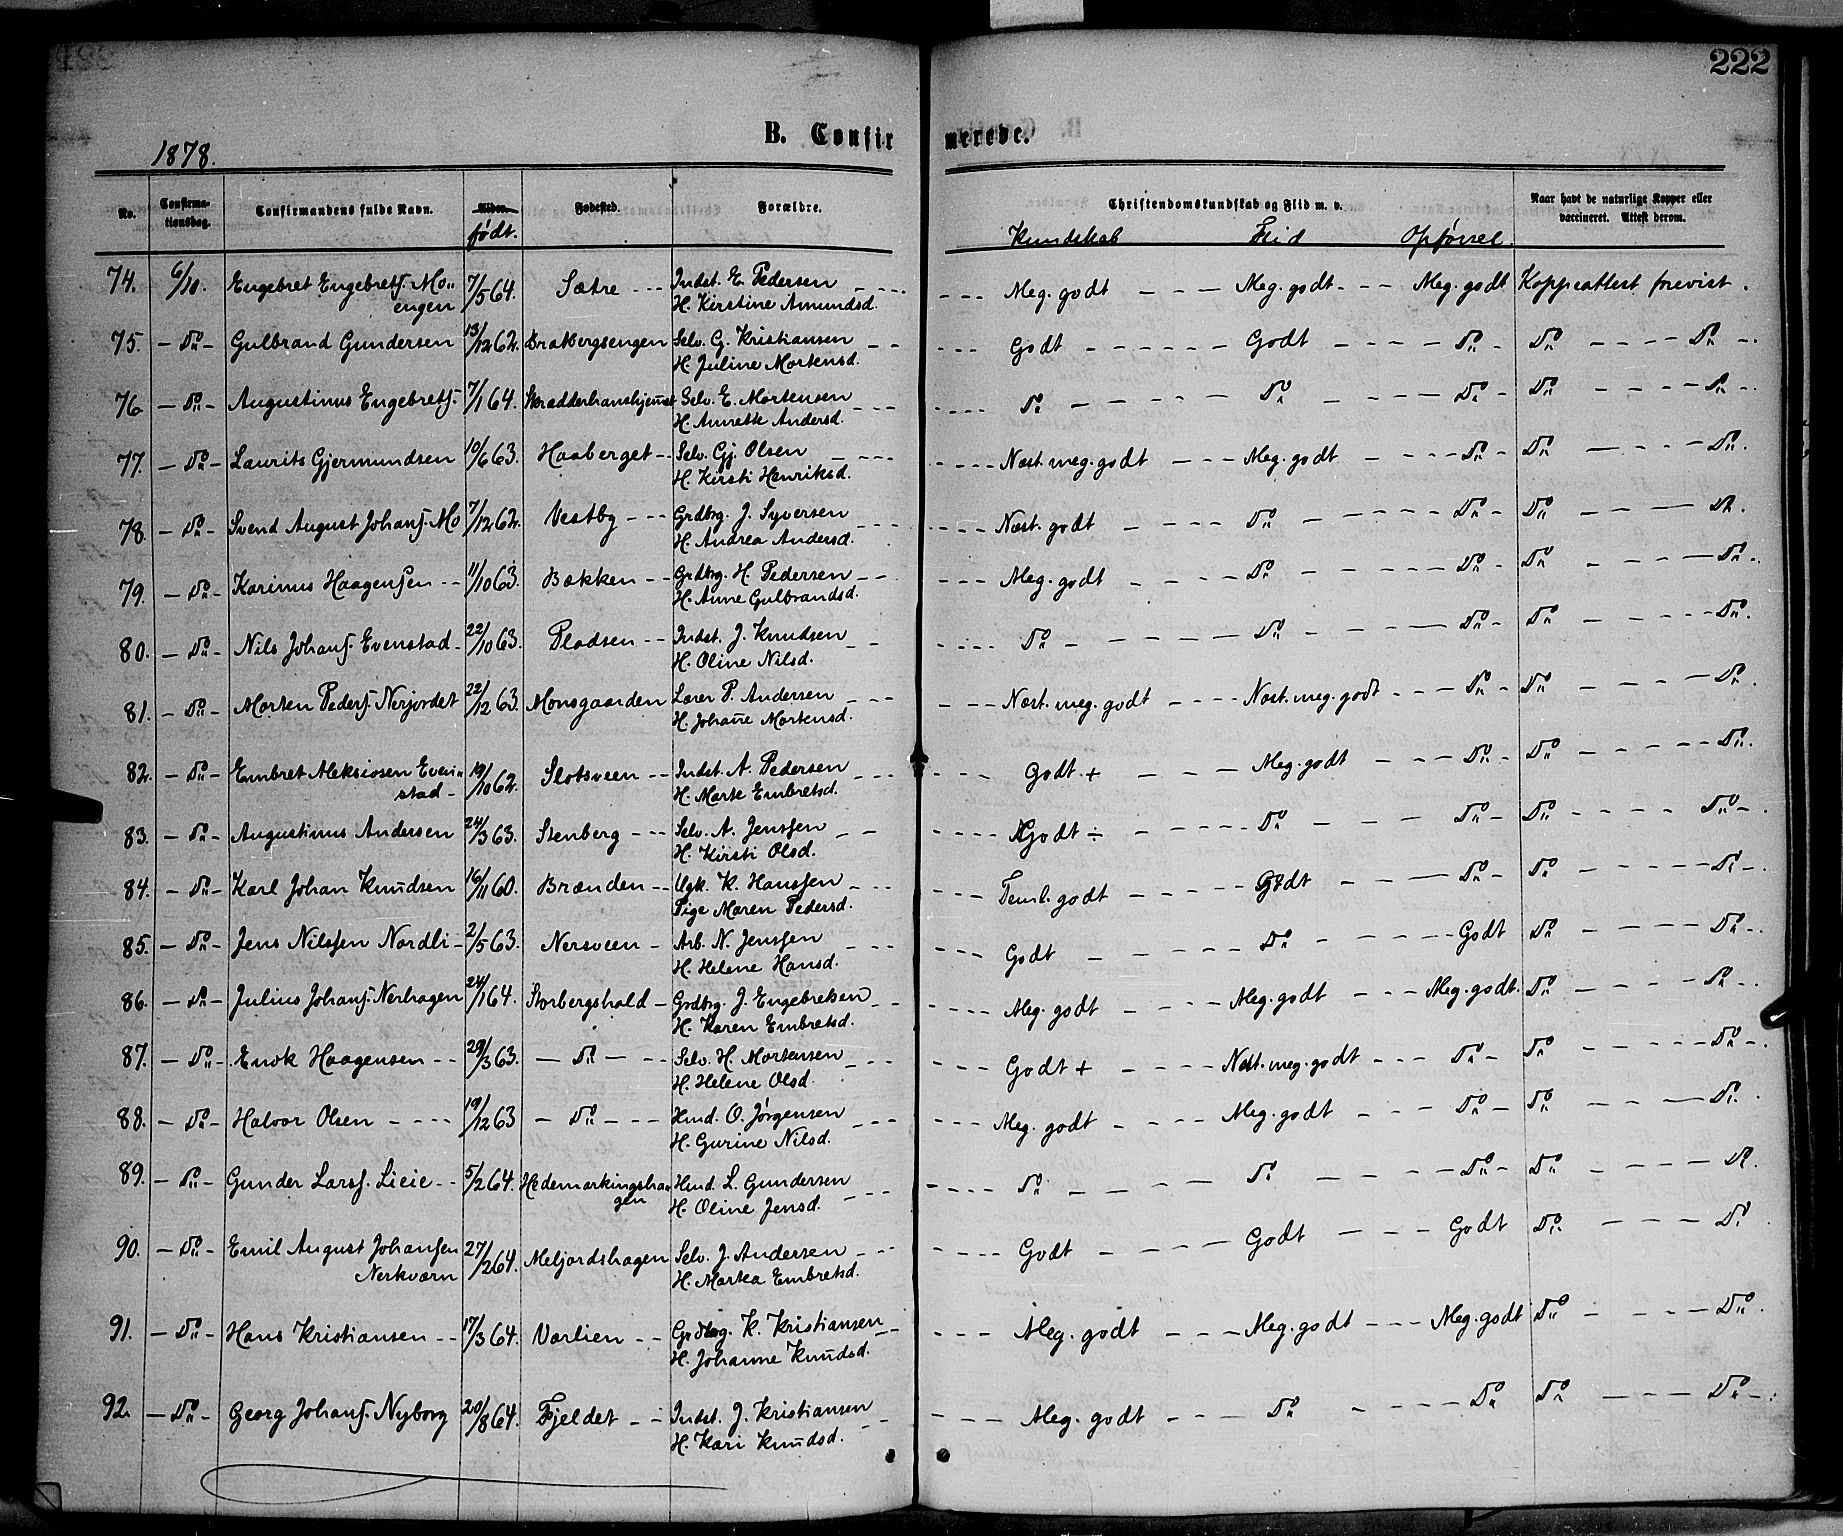 222
B. Confirmerede.
1878.
No. Confirmationsdag. Confirmandens fulde Navn. Alder. født. Fødested. Forældre. Christendomskundskab og Flid m. v. Kundskab Flid Opførsel. Naar havt de naturlige Kopper eller vaccineret. Attest derom.
74. 6/10. Engebret Engebretſ. Mo„ 7/5 64. Sætre --- Indst. E. Pedersen ---- Meg. godt --- Meg. godt --- Meg. godt Koppeattest frevist.
engen H. Kirstine Amundsd.
75. - Do - Gulbrand Gundersen 13/12 62. Bratbergsengen Selv. G. Kristiansen -- Godt ------ Godt ---- Do - Do ---- Do -.
H. Juline Mortensd.
76. - Do - Augustinus Engebretſ. 7/1 64. Skradderhanshjemet Selv. E. Mortensen --- Do ------ Do ---- Do - Do ---- Do -.
H. Annette Andersd.
77. - Do - Laurits Gjermundsen 10/6 63. Haaberget -- Selv. Gj. Olsen ---- Næst. meg. godt --- Meg. godt ---- Do - Do ---- Do.
H. Kirsti Henriksd.
78. - Do - Svend August Johanſ. Mo 7/12 62. Vestby --- Grdbrg. J. Syversen ---- Næst. godt ---- Do ---- Do - Do ---- Do.
H. Andrea Andersd.
79. - Do - Karinus Haagenſen -- 11/10 63. Bækken -- Grdbrg. H. Pedersen -- Meg. godt ---- Do ---- Do - Do ---- Do.
H. Anne Gulbrandsd.
80. - Do - Nils Johanſ. Evenstad - 22/10 63. Pladsen -- Indst. J. Knudsen - Do ----- Do ---- Do - Do ---- Do.
H. Oline Nilsd.
81. - Do - Morten Pederſ. Nerjordet 22/12 63. Monsgaarden Lærer P. Andersen --- Næst. meg. godt ---- Næst. meg. godt --- Do - Do ---- Do.
H. Johanne Mortensd.
82. - Do - Embret Aleksiosen Even„ 19/10 62. Slotsveen -- Indst. A. Pedersen --- Godt + ---- Meg. godt --- Do - Do ---- Do.
stad - H. Marte Embretsd.
83. - Do - Augustinus Andersen 24/3 63. Stenberg --- Selv. A. Jensſen -- Godt ÷ ---- Do ---- Do - Do ---- Do -.
H. Kirsti Olsd.
84. - Do - Karl Johan Knudsen 16/11 60. Brænden -- Ugk. K. Hansſen --- Teml. godt ---- Godt ---- Do - Do ---- Do -.
Pige Maren Pedersd.
85. - Do - Jens Nilsſen Nordli - 2/5 63. Nersveen - Arb. N. Jensſen --- Godt ---- Do ---- Godt Do ---- Do -.
H. Helene Hansd.
86. - Do - Julius Johanſ. Nerhagen 24/1 64. Storbergshold - Grdbrg. J. Engebretsen -- Meg. godt ---- Meg. godt --- Meg. godt. Do ---- Do -.
H. Karen Embretsd.
87. - Do - Enok Haagensen -- 29/3 63. - Do --- Selv. H. Mortensen --- Godt + ---- Næst. meg. godt --- Do - Do ---- Do -.
H. Helene Olsd.
88. - Do - Halvor Olsen ---- 19/12 63 - Do --- Hmd. O. Jørgensen --- Meg. godt ---- Meg. godt --- Do - Do ---- Do.
H. Gurine Nilsd.
89. - Do - Gunder Larsſ. Lieie -- 5/2 64. Hedemarkingsha„ Hmd. L. Gundersen --- Do ----- Do ---- Do - Do ---- Do.
gen H. Oline Jensd.
90. - Do - Emil August Johanſen 27/2 64. Meljordshagen Selv. J. Andersen --- Godt ---- Godt --- Godt Do ---- Do.
Nerkværn H. Martea Embretsd.
91. - Do - Hans Kristiansen -- 17/3 64. Varlien -- Grdbrg. K. Kristiansen -- Meg. godt --- Meg. godt --- Meg. godt Do ---- Do.
H. Johanne Knudsd.
92. - Do - Georg Johanſ. Nyborg 20/8 64. Fjeldet -- Indst. J. Kristiansen - Meg. godt --- Do ---- Do Do ---- Do -.
H. Kari Knudsd.